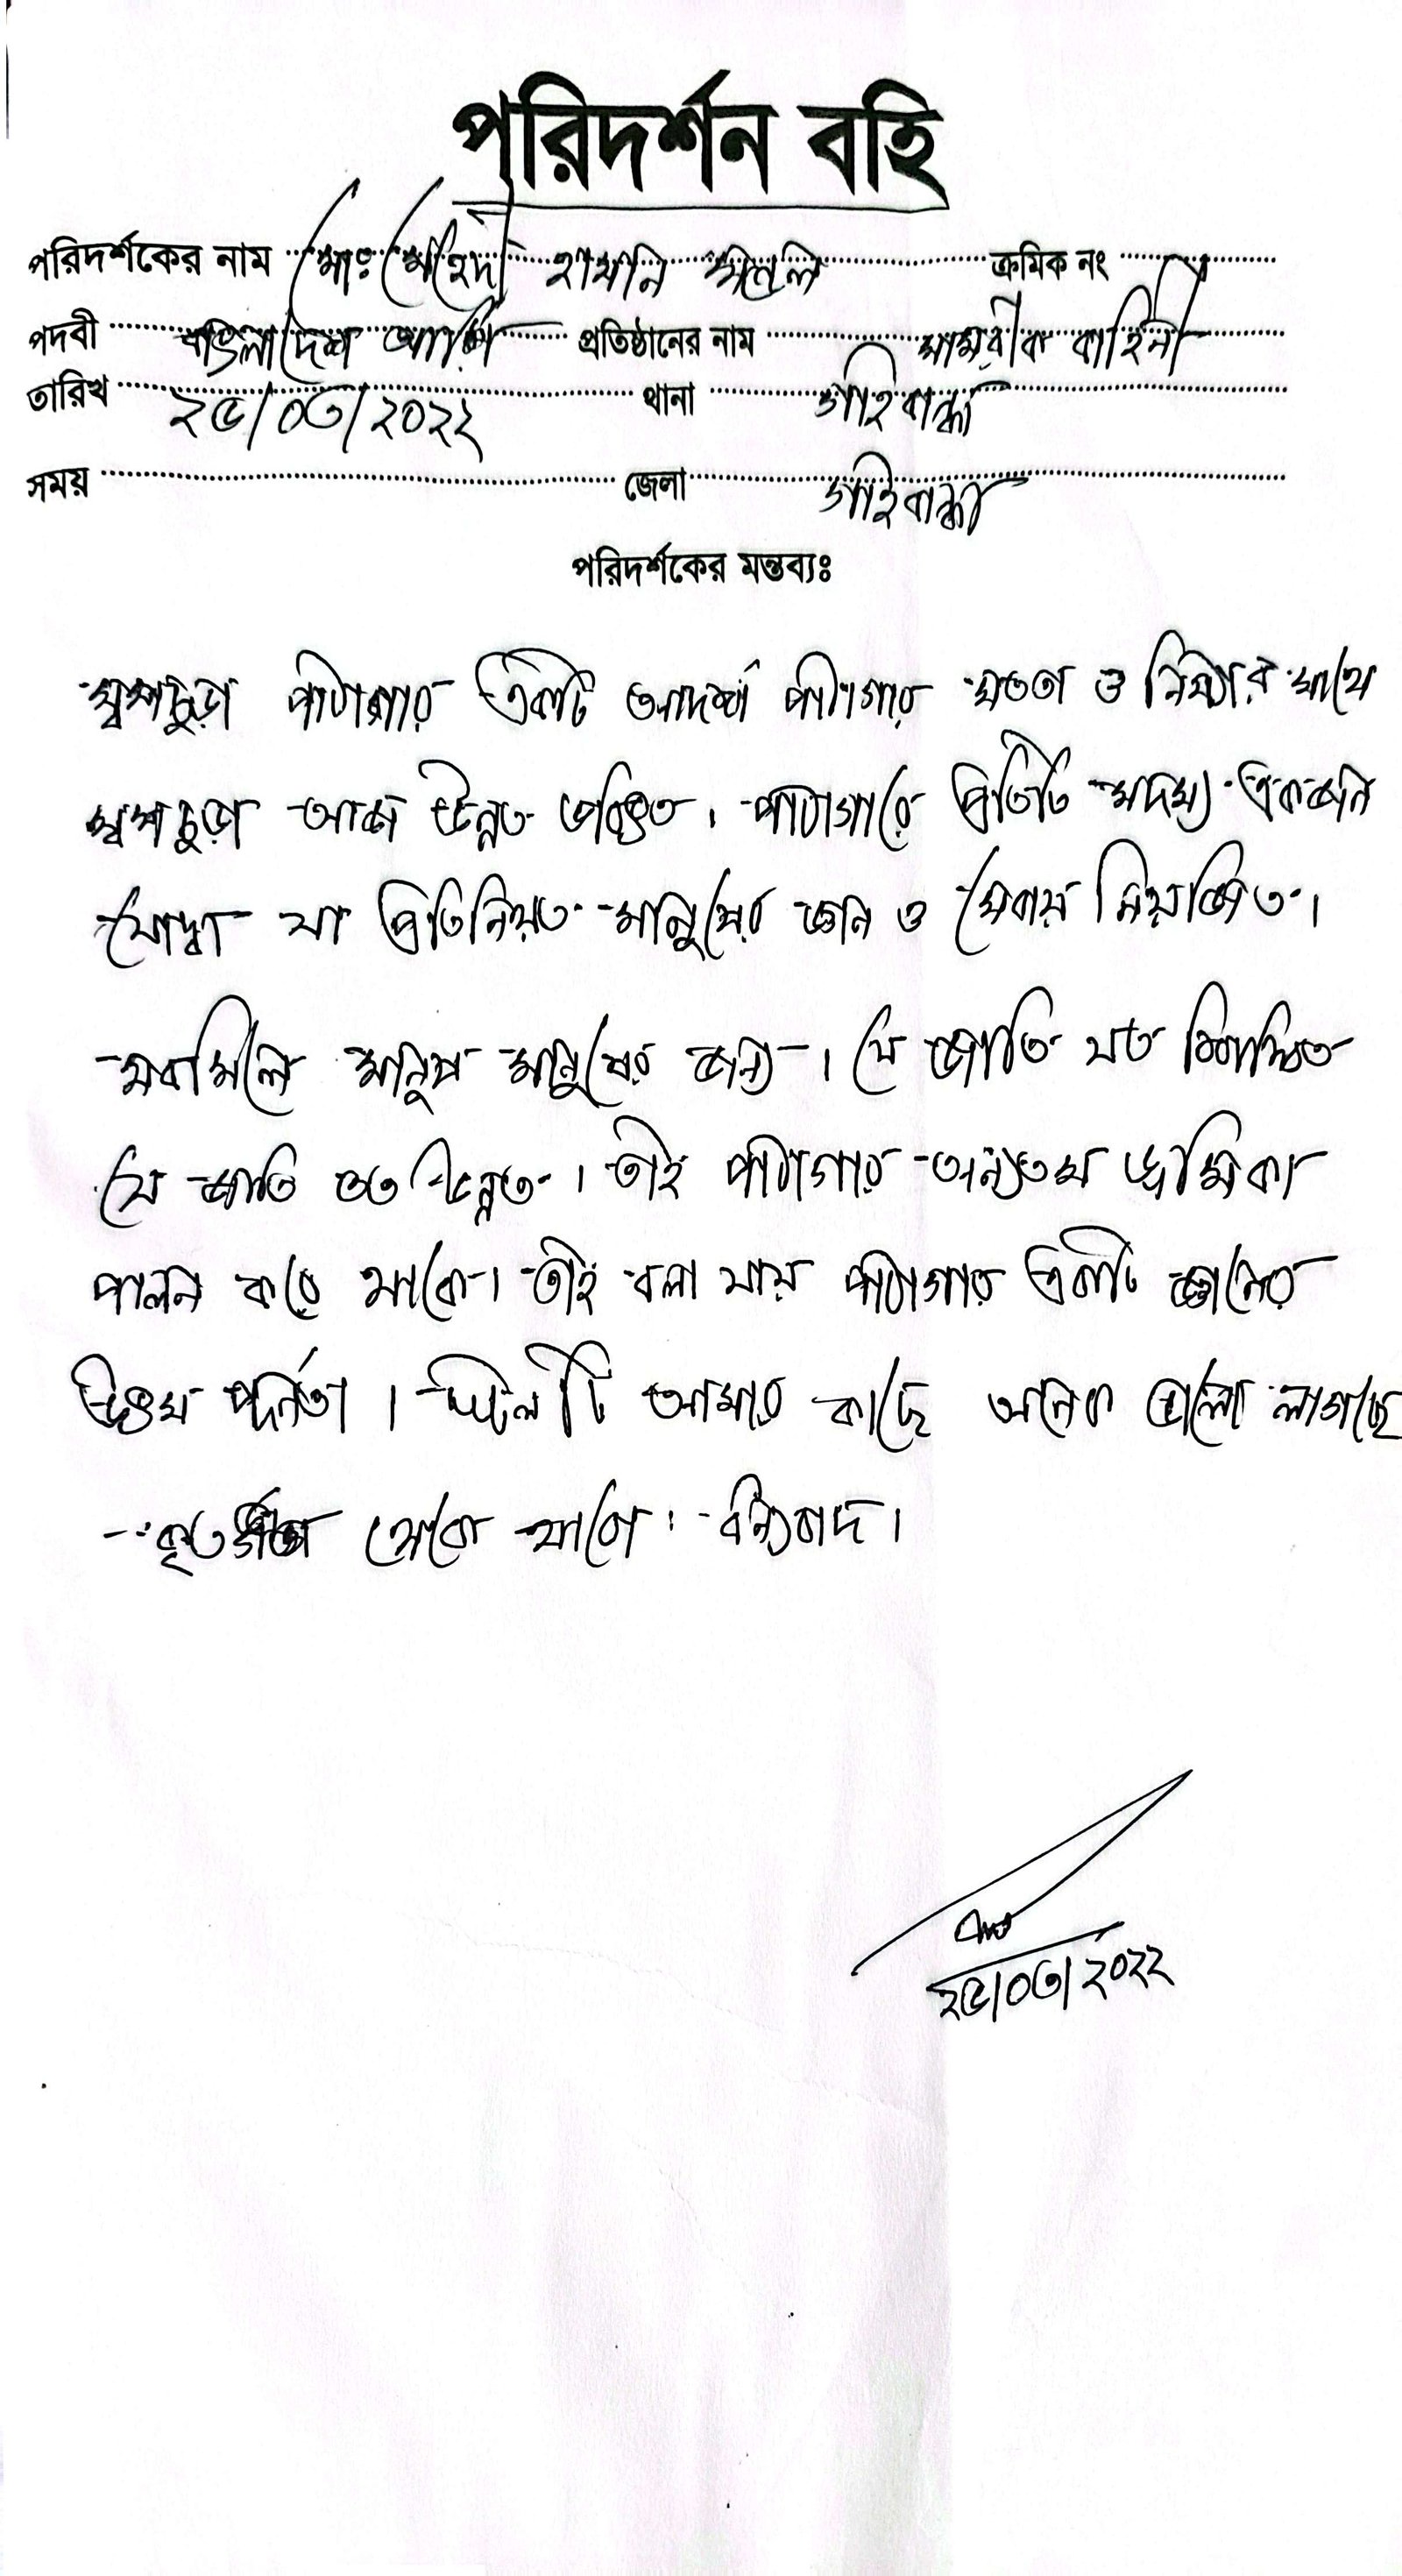 পরিদর্শন বহি
পরিদর্শকের নাম মোঃ মেহেদী হাসান ক্রমিক নং
পদবী বাংলাদেশ আর্মি প্রতিষ্ঠানের নাম সামরীক বাহিনী
তারিখ ২৫/০৩/২০২২ থানা গাইবান্ধা
সময় জেলা গাইবান্ধা
পরিদর্শকের মন্তব্যঃ
স্বপ্নচুড়া পাঠাগার একটি আদর্শ পাঠাগার সততা ও নিষ্ঠার সাথে
স্বপ্নচুড়া আজ উন্নত। পাঠাগারে প্রতিটি সদস্য একজন
যোদ্ধা যা প্রতিনিয়ত মানুষের জ্ঞান ও সেবায় নিয়জিত।
সবমিলে মানুষ মানুষের জন্য। যে জাতি যত শিক্ষিত
সে জাতি তত উন্নত। তাই পাঠাগার অন্যতম ভূমিকা
পালন করে থাকে। তাই বলা যায় পাঠাগার একটি জ্ঞানের
উত্তম। আমার কাছে অনেক ভালো লাগছে
থেকে যাবো। ধন্যবাদ।
২৫/০৩/২০২২